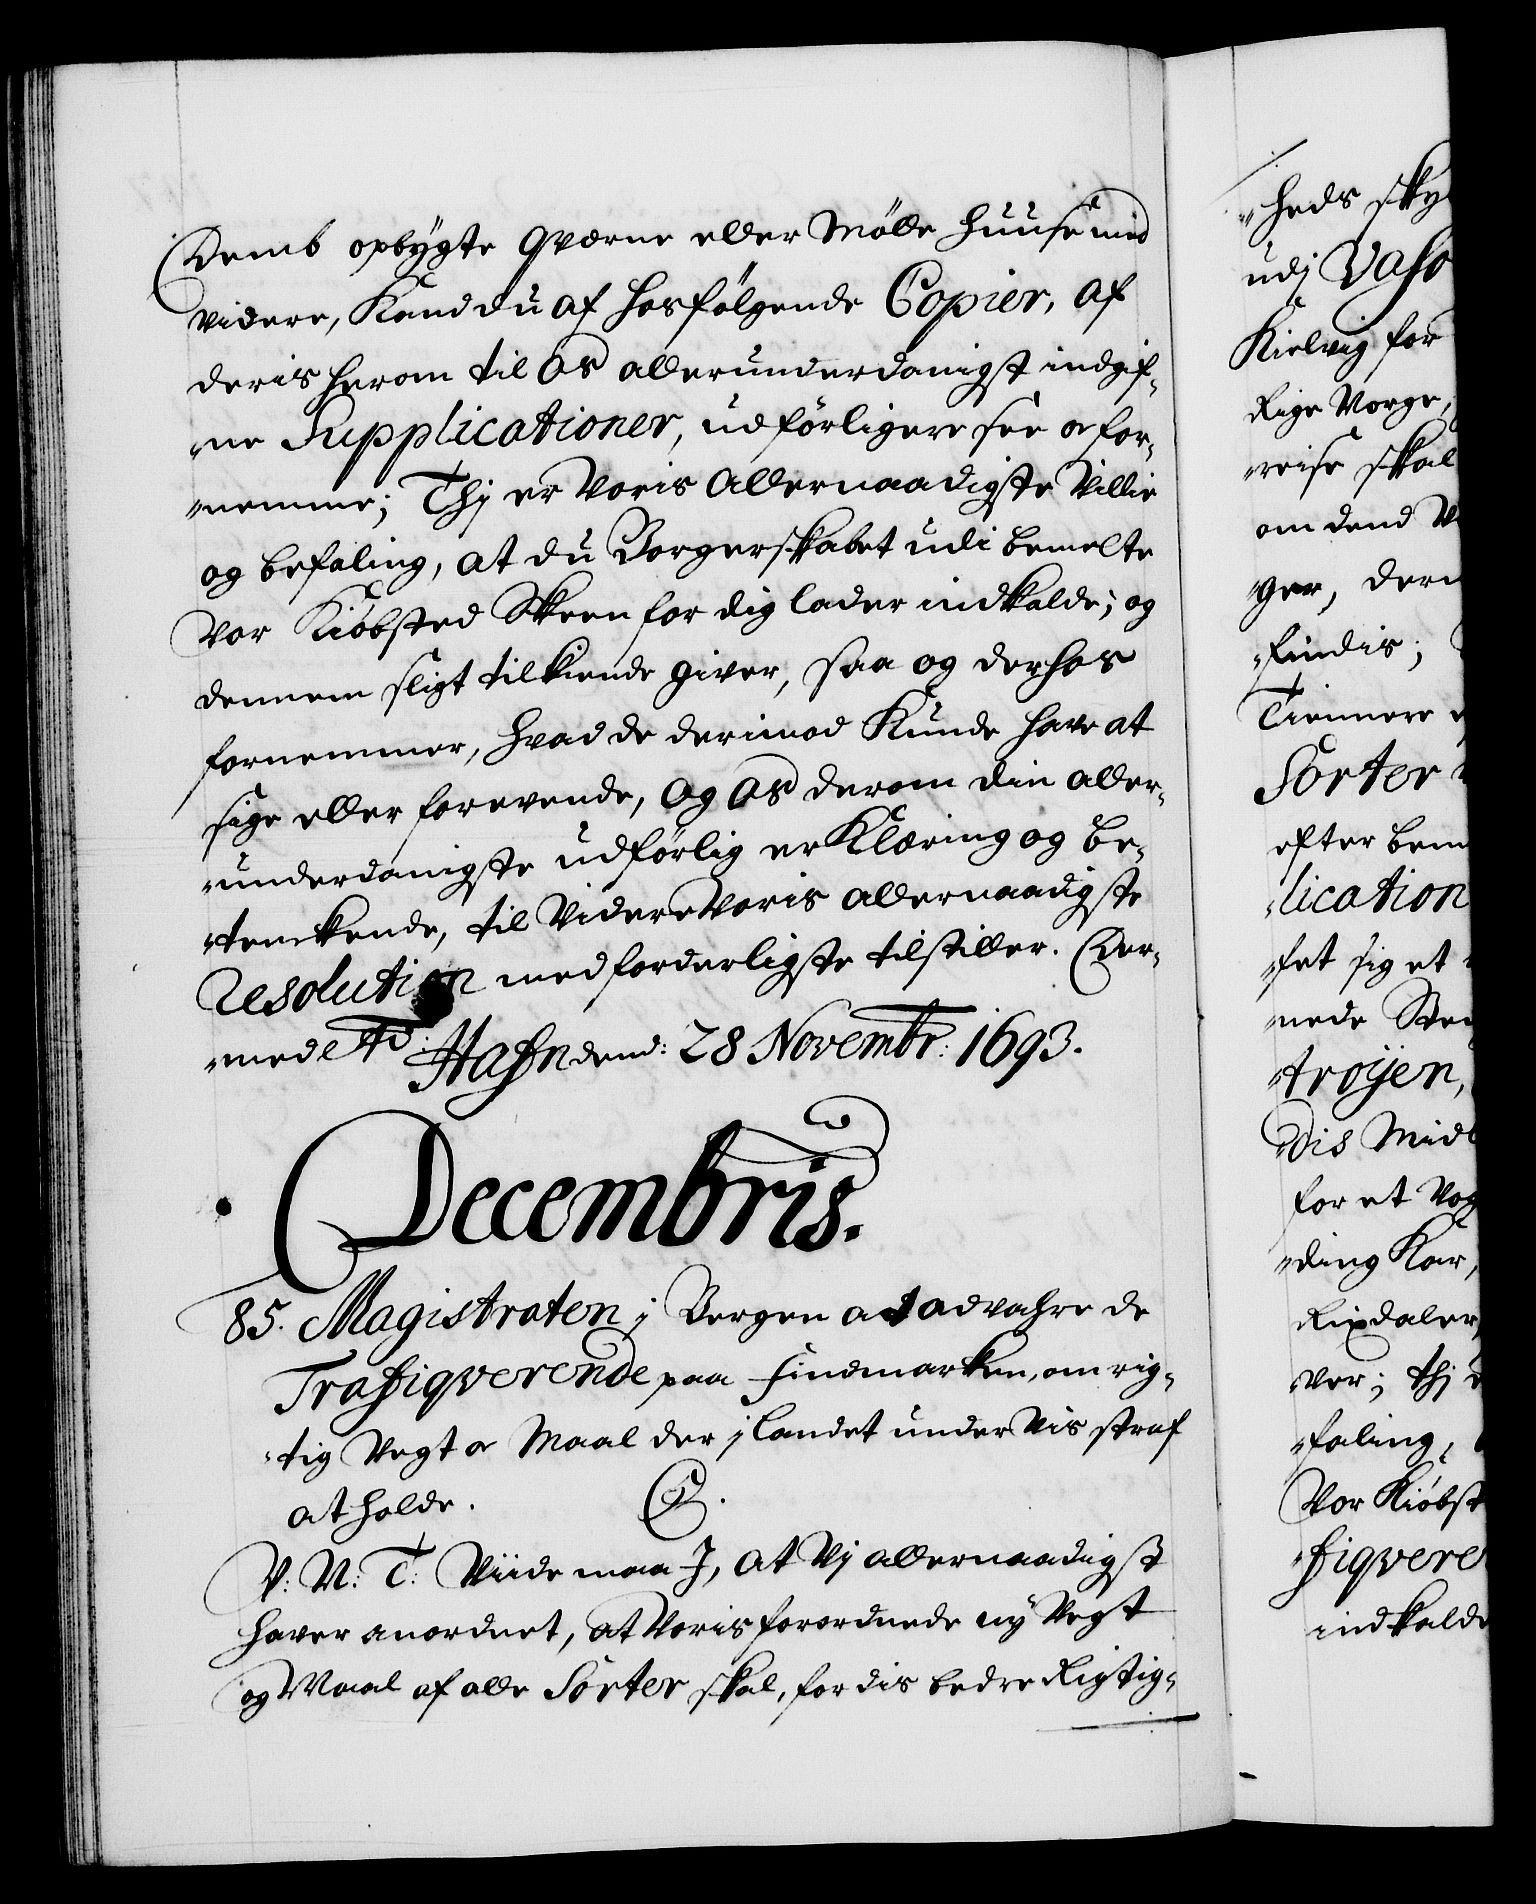 Demb opbÿgte Qværne eller Mölle Huuse med
videre, Kand du af hosfölgende Copier, af
deris herom til Os allerunderdanigst indgif-
ne Supplicationer, udförligere see oc for-
nemme; Thj er Voris Allernaadigste Villie
og befaling, at du Borgerskabet udi bemelte
Vor Kiöbsted Skeen for dig lader indkalde; og
dennem sligt tilkiende giver, saa og derhos
fornemmer, hvad de derimod Kunde have at
sige eller forevende, Og Os derom din aller-
underdanigste udförlig erKlæring og be-
tenckende, til Videre Voris allernaadigste
Resolution med forderligste tilstiller. Der-
med etc: Hafn dend: 28 Novembr: 1693.
Decembris.
85. Magistraten j Bergen at advahre de
Trafiqverende paa Findmarken, om rig-
tig Vegt oc Maal der j Landet under Vis straf
at holde. C5.
V: N: T: Viide maa J, at Vj allernaadigst
haver anordnet, at Voris forordnede nÿ Vegt
og Maal af alle Sorter skal, for dis bedre Rigtig-
heds sky
udj Vahr
Kielvig for
Rige Norge,
reise skal
om dend V
ger, der
findis;
Tienner
Sorter
efter bem
lication
fet sig et
nede Ste
troÿen,
dis Midl
for et Vog
ding Kar,
Rixdaler
ver; thj
faling,
Vor Kiöbst
fiqvere
indkalde